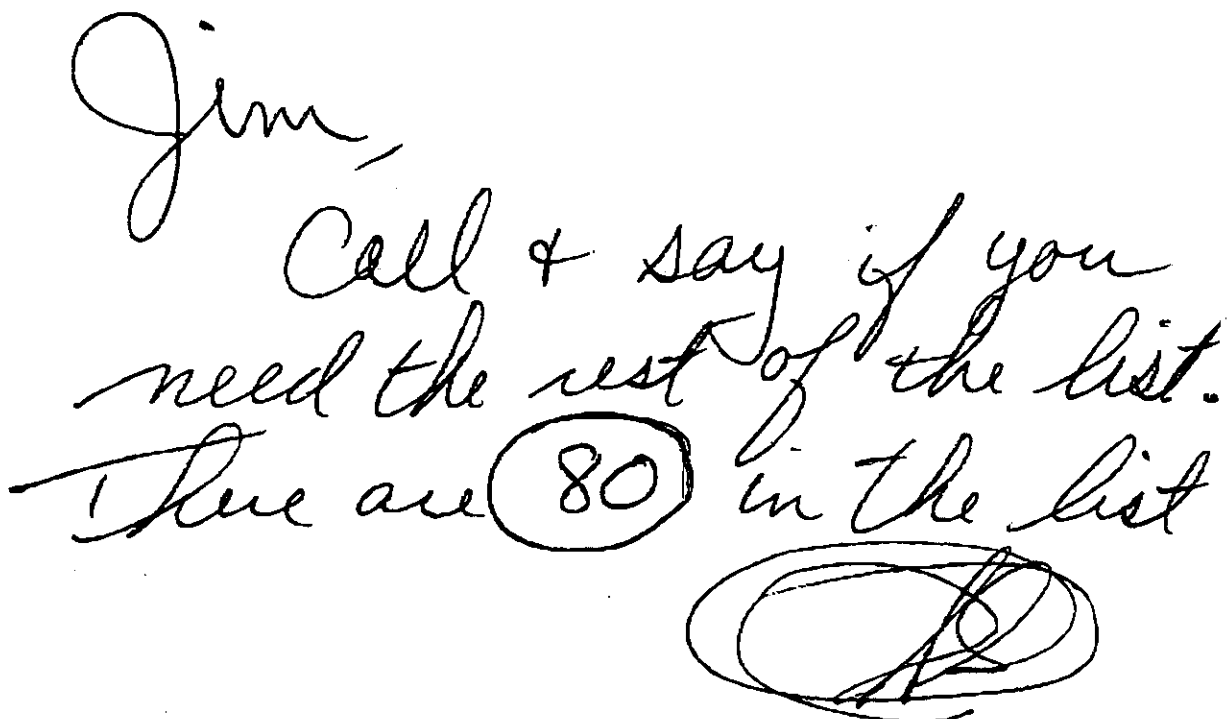 Jim,
Call & say if you
need the rest of the list.
There are 80 in the list